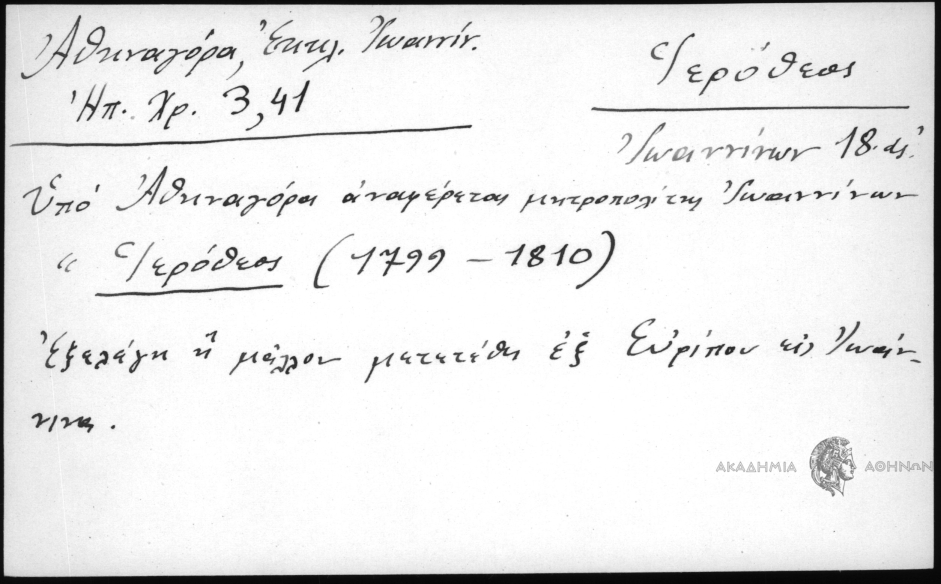 Ἀθηναγόρα, Ἐκκλ. Ἰωαννίν.
Ἠπ. Χρ. 3,41
Ἱερόθεος
Ἰωαννίνων 18. αἰ.
Ὑπό Ἀθηναγόρα ἀναφέρεται μητροπολίτης Ἰωαννίνων
“ Ἱερόθεος (1799 – 1810)
Ἐξελέγη ἤ μᾶλλον μετετέθη ἐξ Εὐρίπου εἰς Ἰωάν-
νινα.
ΑΚΑΔΗΜΙΑ ΑΘΗΝΩΝ